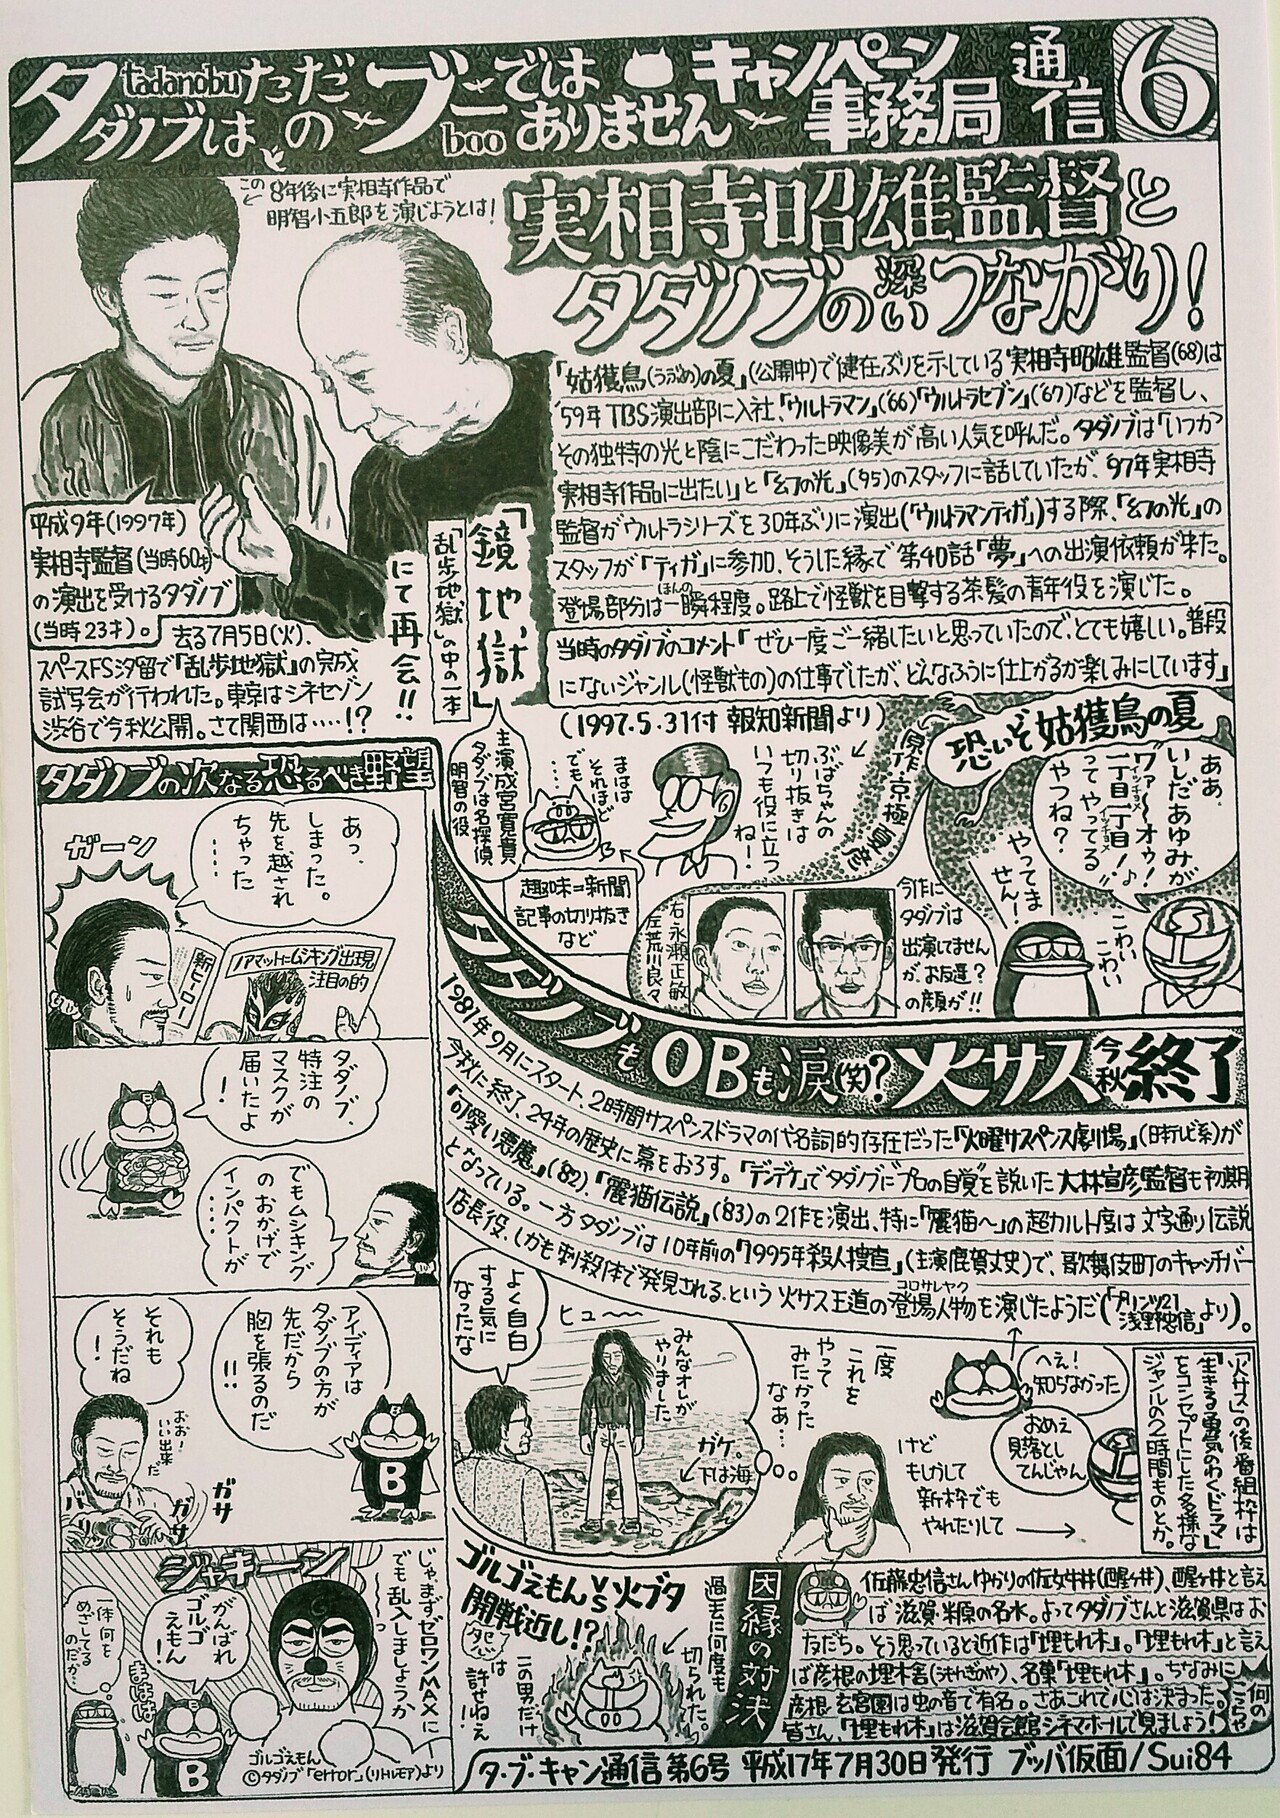 tadanobu
タダノブは
ただの
ブー
boo
では
ありません
キャンペーン
事務局
通信
6
この
8年後に実相寺作品で
明智小五郎を演じようとは!
実相寺昭雄監督と
タダノブの深いつながり!
「姑獲鳥(うぶめ)の夏」(公開中)で健在ぶりを示している実相寺昭雄監督(68)は
'59年TBS演出部に入社、「ウルトラマン」('66)「ウルトラセブン」('67)などを監督し、
その独特の光と陰にこだわった映像美が高い人気を呼んだ。タダノブは「いつか
実相寺作品に出たい」と「幻の光」('95)のスタッフに話していたが、'97年実相寺
監督がウルトラシリーズを30年ぶりに演出(「ウルトラマンティガ」)する際、「幻の光」の
スタッフが「ティガ」に参加、そうした縁で第40話「夢」への出演依頼が来た。
登場部分はほんの一瞬程度。路上で怪獣を目撃する茶髪の青年役を演じた。
当時のタダノブのコメント「ぜひ一度ご一緒したいと思っていたので、とても嬉しい。普段
にないジャンル(怪獣もの)の仕事でしたが、どんなふうに仕上がるか楽しみにしています」
(1997.5.31付 報知新聞より)
平成9年(1997年)
実相寺監督(当時60才)
の演出を受けるタダノブ
(当時23才)。
去る7月5日(火)、
スペースFS汐留で「乱歩地獄」の完成
試写会が行われた。東京はシネセゾン
渋谷で今秋公開。さて関西は……!?
「鏡地獄」
「乱歩地獄」の中の一本
にて再会!!
主演成宮寛貴
タダノブは名探偵
明智の役
まはは
それほど
でも…
ぶばちゃんの
切り抜きは
いつも役に立つ
ね!
趣味=新聞
記事の切り抜き
など
原作・京極夏彦
恐いぞ姑獲鳥の夏
ああ、
いしだあゆみが
ワァ~オゥ!
一丁目一丁目!♪
ってやってる
やつね?
やってま
せん!
こわい
こわい
右・永瀬正敏
左・荒川良々
今作に
タダノブは
出演してません
が、お友達?
の顔が!!
タダノブの次なる恐るべき野望
ガーン
あっ、
しまった。
先を越され
ちゃった
……
新ヒーロー
ノアマットにムシキング出現
注目の的
タダノブ、
特注の
マスクが
届いたよ
!
でもムシキング
のおかげで
インパクトが
……
アイディアは
タダノブの方が
先だから
胸を張るのだ
!!
それも
そうだね
!
おお!
いい出来
だ
ガサ
ガサ
B
ジャキーン
じゃ、まずゼロワンMAXに
でも乱入しましょうか
~っ
がんばれ
ゴルゴ
えもん!
一体何を
めざしてる
のだか…
まはは
B
ゴルゴえもん
©タダノブ「error」(リトルモア)より
タダノブもOBも涙(笑)?火サス今秋終了
1981年9月にスタート、2時間サスペンスドラマの代名詞的存在だった「火曜サスペンス劇場」(日本テレビ系)が
今秋に終了、24年の歴史に幕をおろす。「デンデケ」でタダノブに“プロの自覚”を説いた大林宣彦監督も初期
「可愛い悪魔」('82)、「麗猫伝説」('83)の2作を演出、特に「麗猫~」の超カルト度は文字通り伝説
となっている。一方タダノブは10年前の「1995年殺人捜査」(主演鹿賀丈史)で、歌舞伎町のキャッチバー
店長役、しかも刺殺体で発見される、という火サス王道の登場人物(コロサレヤク)を演じたようだ(「プリンツ21 浅野忠信」より)。
よく自白
する気に
なったな
ヒュ~~
みんなオレが
やりました
ガケ。
下は海
一度
これを
やって
みたかった
なあ…
けど
もしかして
新枠でも
やれたりして
へえ!
知らなかった
おめえ
見落とし
てんじゃん
「火サス」の後番組枠は
「生きる勇気のわくドラマ」
をコンセプトにした多様な
ジャンルの2時間ものとか。
ゴルゴえもんVS火ブタ
開戦近し!?
この男だけ
は
許せねえ
切られた。
過去に何度も
因縁の対決
佐藤忠信さんゆかりの佐女牛井(醒ヶ井)、醒ヶ井と言え
ば滋賀・米原の名水。よってタダノブさんと滋賀県はお
友だち。そう思っていると近作は「埋もれ木」。「埋もれ木」と言え
ば彦根の埋木舎(うもれぎのや)、名菓「埋もれ木」。ちなみに
彦根・玄宮園は虫の音で有名。さあこれで心は決まった。
皆さん、「埋もれ木」は滋賀会館シネマホールで見ましょう!
何の
こっちゃ
タ・ブ・キャン通信第6号 平成17年7月30日発行 ブッバ仮面/Sui84